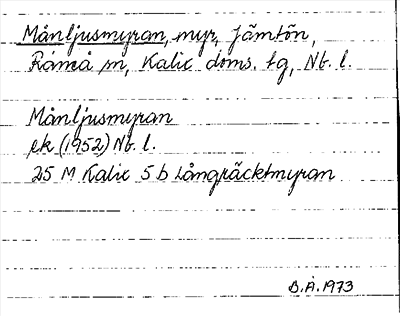 Månljusmyran, myr, Jämtön,
Råneå sn, Kalix doms. tg, Nb. l.
Månljusmyran
ek (1952) Nb. l.
25 M Kalix 5 b Långräcktmyran
B.Å. 1973